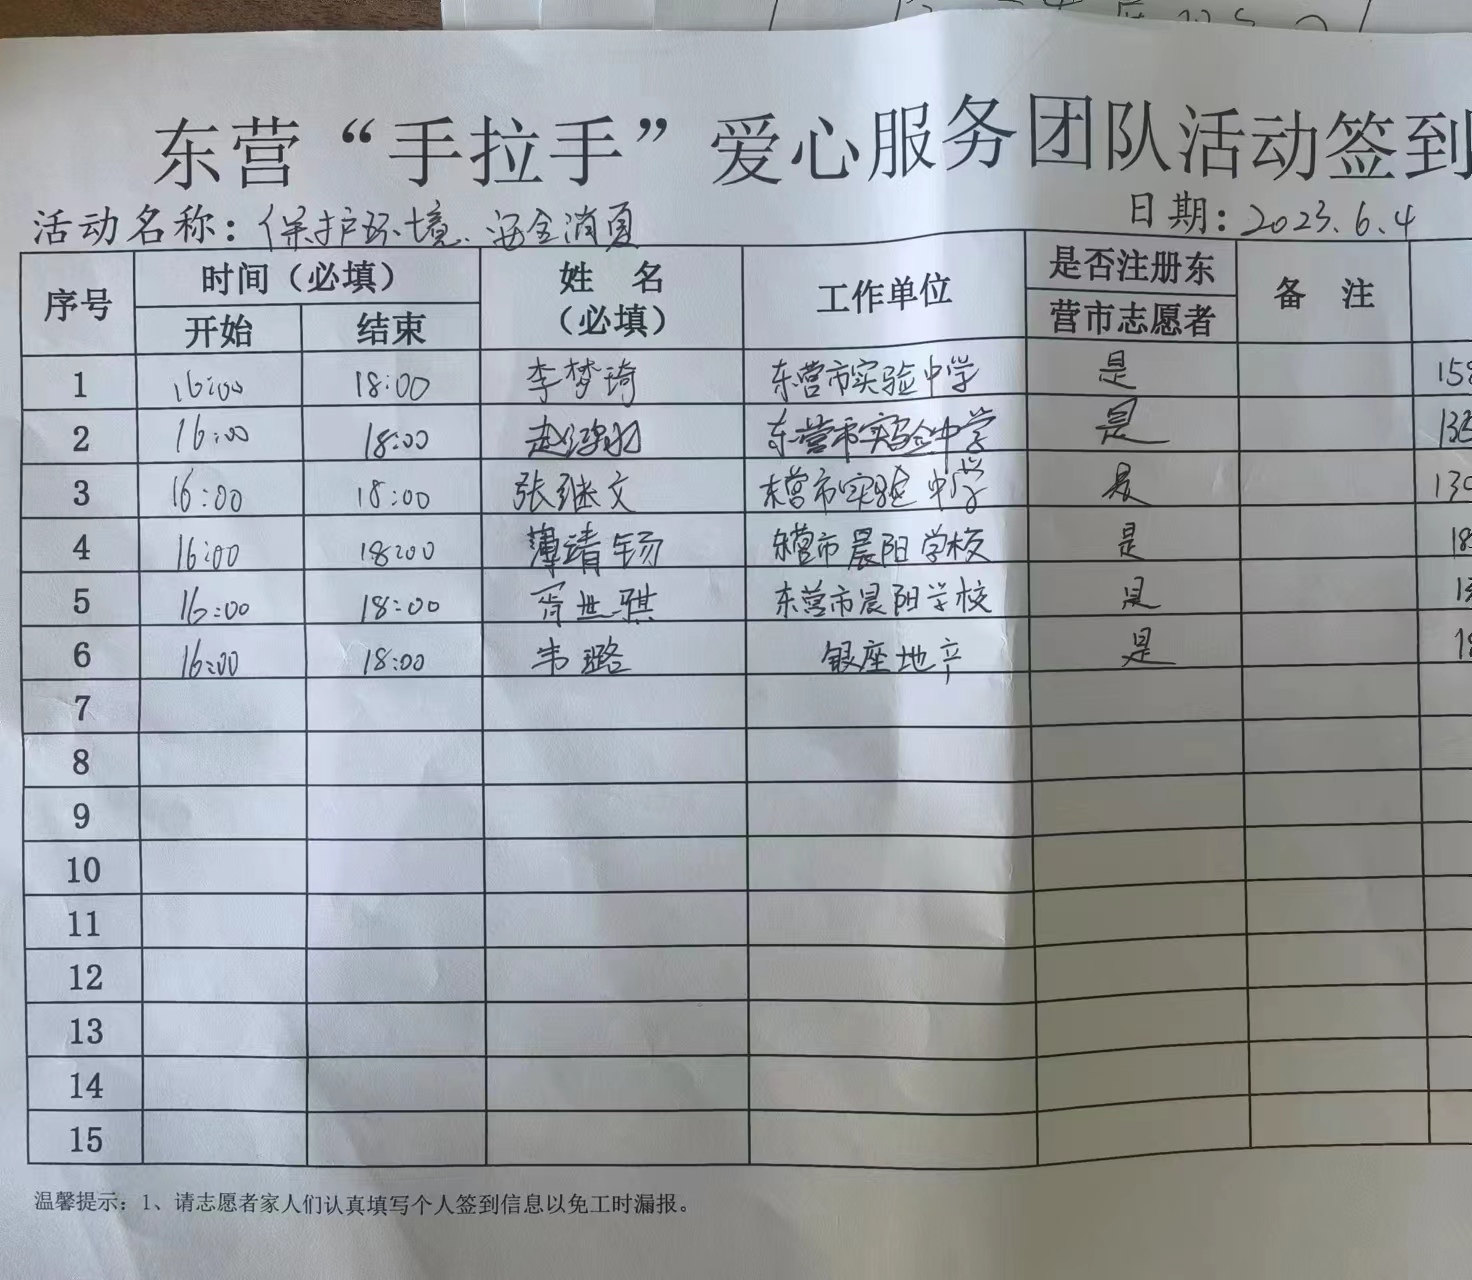 东营“手拉手”爱心服务团队活动签到
活动名称：保护环境、安全消夏 日期：2023.6.4
序号 时间（必填） 姓 名（必填） 工作单位 是否注册东营市志愿者 备 注
开始 结束
1 16:00 18:00 李梦琦 东营市实验中学 是 158
2 16:00 18:00 东营市实验中学 是
3 16:00 18:00 张继文 东营市实验中学 是 130
4 16:00 18:00 薄靖钖 东营市晨阳学校 是 18
5 16:00 18:00 胥世骐 东营市晨阳学校 是
6 16:00 18:00 韦璐 银座地产 是 18
7
8
9
10
11
12
13
14
15
温馨提示：1、请志愿者家人们认真填写个人签到信息以免工时漏报。